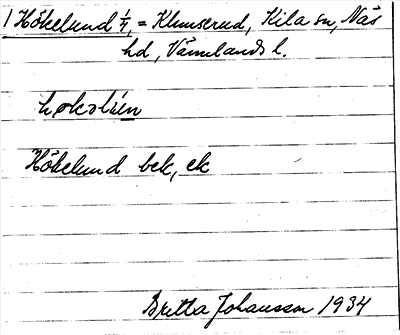 1 Hökelund 1/4, = Klunserud, Kila sn, Näs
hd, Värmlands l.
Hökelund bek, ek
Britta Johansson 1934